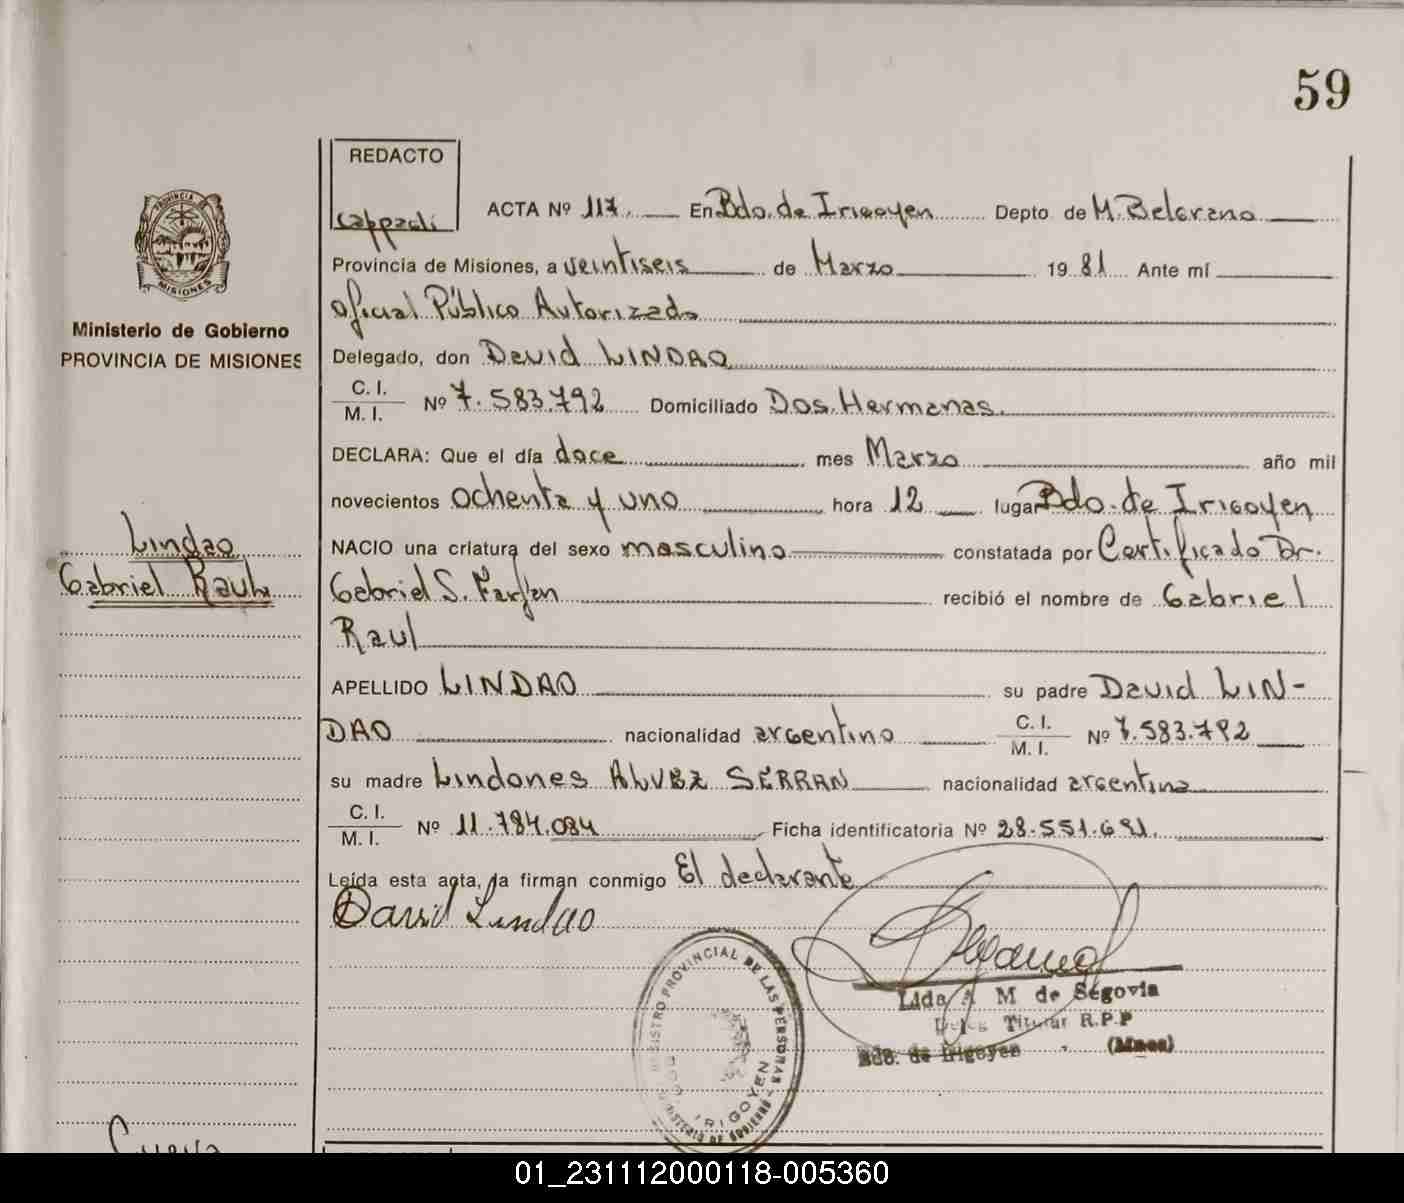 59
REDACTO
Cappadi
ACTA Nº 117. En Bdo. de Irigoyen Depto de M. Belgrano
Provincia de Misiones, a veintiseis de Marzo 1981 Ante mí
Oficial Público Autorizado
Delegado, don David LINDAO
C. I. / M. I. Nº 7.583.792 Domiciliado Dos Hermanas.
DECLARA: Que el día doce mes Marzo año mil
novecientos ochenta y uno hora 12 lugar Bdo. de Irigoyen
NACIO una criatura del sexo masculino constatada por Certificado Dr.
Gabriel S. Farfan recibió el nombre de Gabriel
Raul
APELLIDO LINDAO su padre David LIN-
DAO nacionalidad argentino C. I. / M. I. Nº 7.583.792
su madre Lindones ALVEZ SERRAN nacionalidad argentina
C. I. / M. I. Nº 11.784.084 Ficha identificatoria Nº 28.551.691.
Leída esta acta, la firman conmigo El declarante
David Lindao
Lida A M de Segovia
Titular R.P.P
Bdo. de Irigoyen (Mnes)
REGISTRO PROVINCIAL DE LAS PERSONAS
MINISTERIO DE GOBIERNO
BDO. IRIGOYEN
PROVINCIA DE
MISIONES
Ministerio de Gobierno
PROVINCIA DE MISIONES
Lindao
Gabriel Raul
01_231112000118-005360